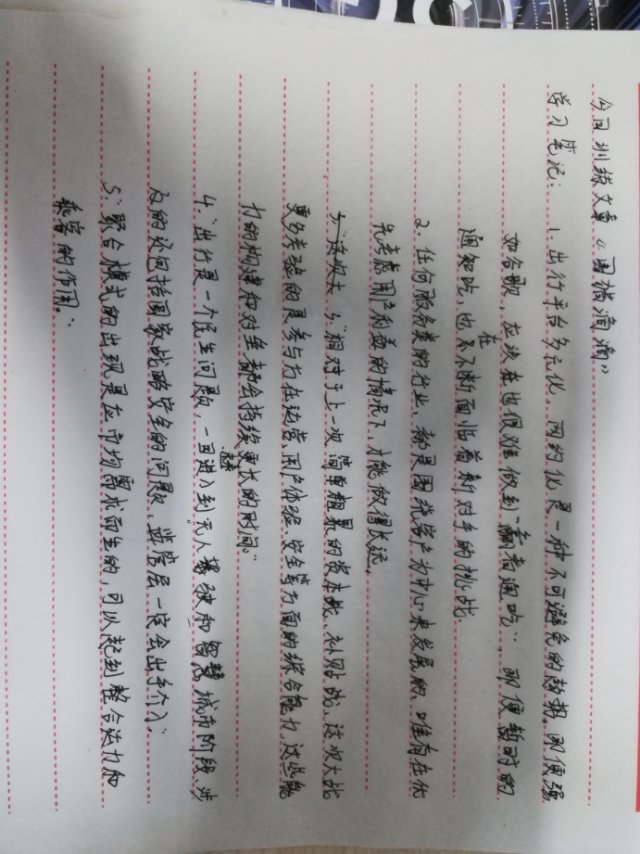 今日训练文章《围猎滴滴》
学习笔记：1.出行平台多元化、网约化是一种不可避免的趋势。即便强
如谷歌，应该在也很难做到“赢者通吃”，即便暂时的
通知吃，也在不断面临着新对手的挑战。
2.任何服务类的行业，都是围绕客户为中心来发展的，唯有在优
先考虑用户利益的情况下，才能做得长远。
3.“这次大 3.“相对于上一次简单粗暴的资本战、补贴战，这次大战
更多考验的是参与方在运营、用户体验、安全等方面的综合能力，这些能
力的构建和对垒都会持续更长的时间。”
4.“出行是一个民生问题，一旦进入到无人驾驶和智慧城市阶段，涉
及的还包括国家战略安全的问题，监管层一定会出手介入。”
5.“聚合模式的出现是应市场需求而生的，可以起到整合运力和
乘客的作用。”